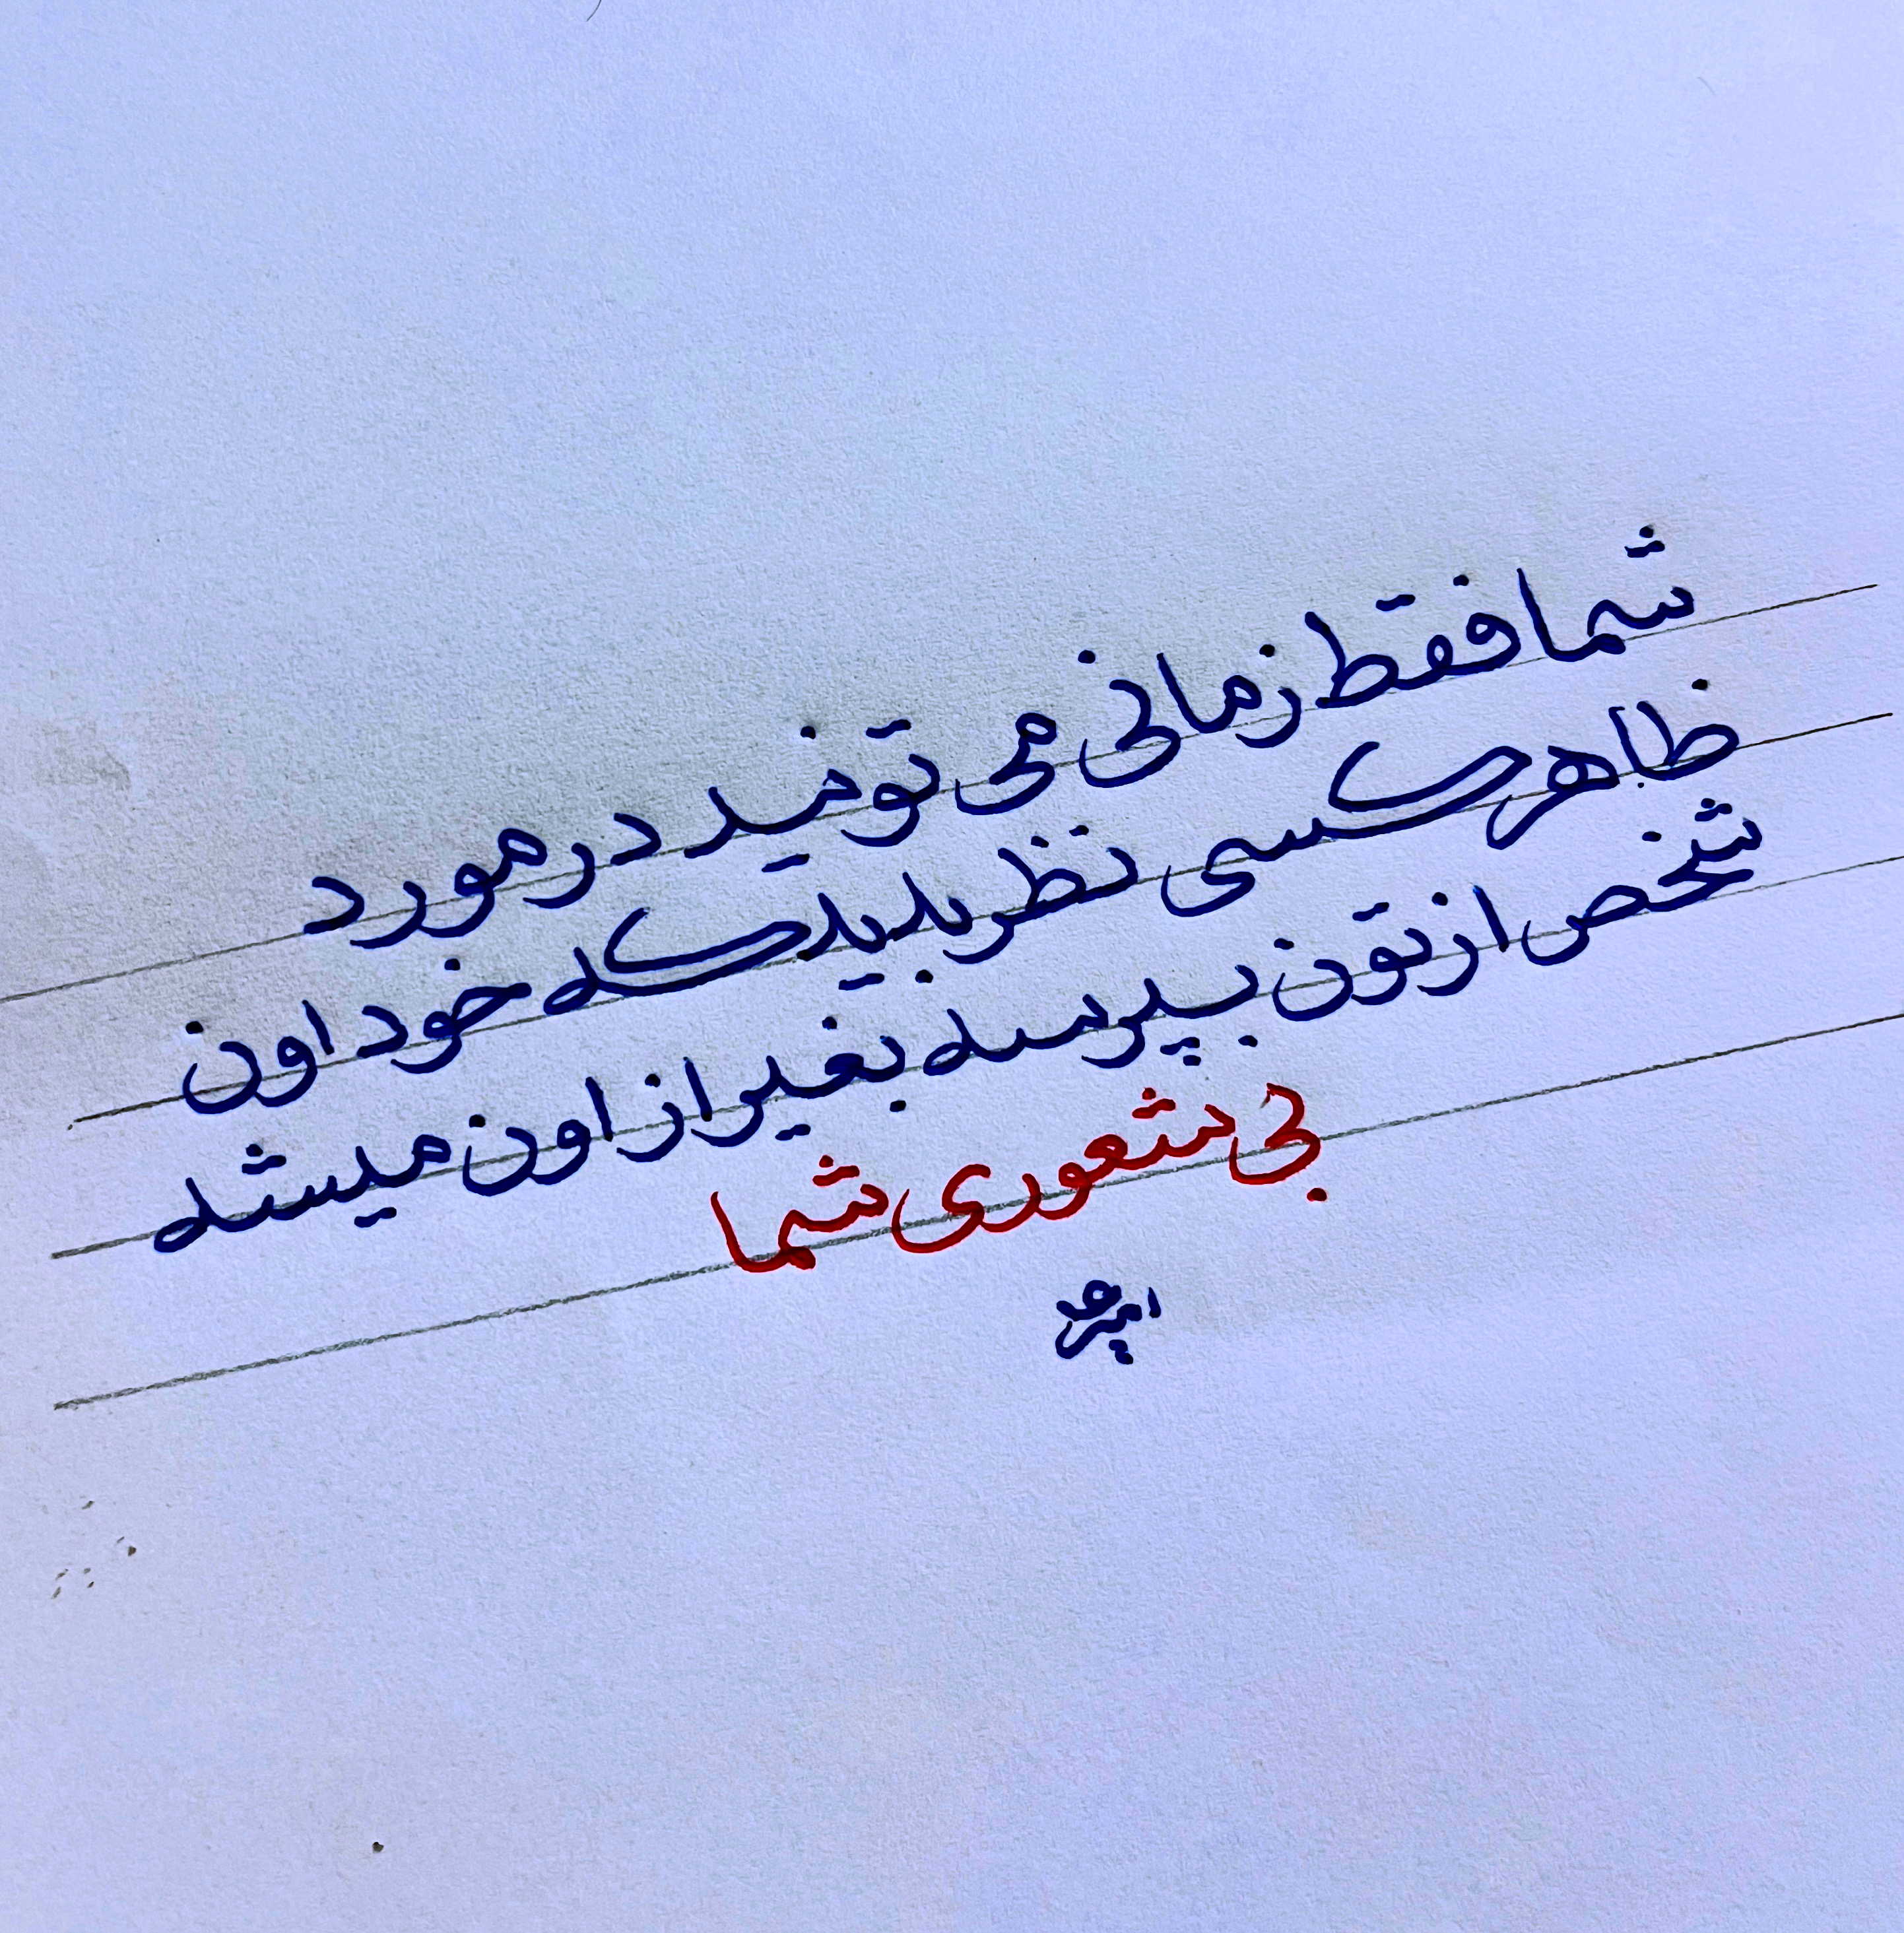 شما فقط زمانی می تونید در مورد
ظاهر کسی نظر بدید که خود اون
شخص ازتون بپرسه بغیر از اون میشه
بی شعوری شما